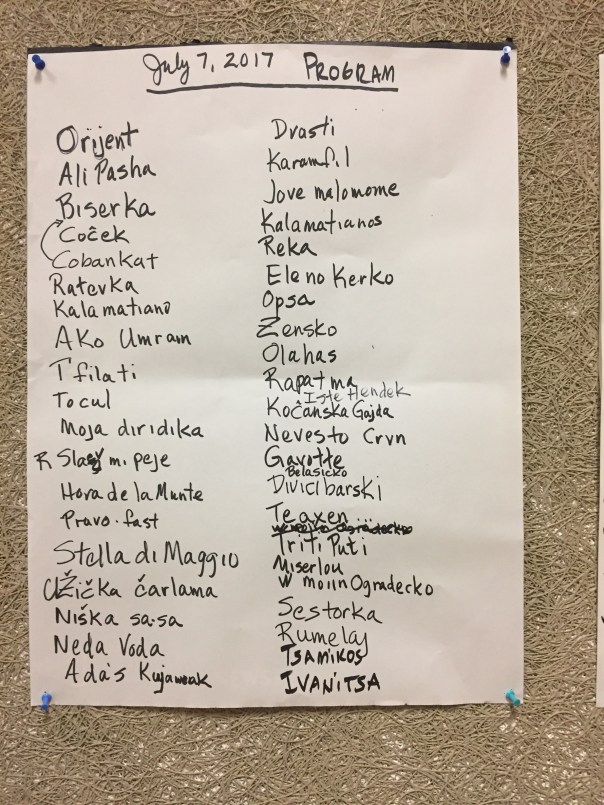 July 7, 2017 PROGRAM
Orijent
Ali Pasha
Biserka
Coček
Cobankat
Ratevka
Kalamatiano
Ako Umram
T'filati
Tocul
Moja diridika
R Slavej mi peje
Hora de la Munte
Pravo-fast
Stella di Maggio
Užička čarlama
Niška sa-sa
Neda Voda
Ada's Kujaweak
Dvasti
Karamfil
Jove malomome
Kalamatianos
Reka
Eleno Kerko
Opsa
Zensko
Olahas
Rapatma
Iste Hendek
Kočanska Gajda
Nevesto Crvn
Gavotte
Belasicko
Divicibarski
Teaxen
Triti Puti
Miserlou
W moiin Ogradecko
Sestorka
Rumelaj
TSAMIKOS
IVANITSA